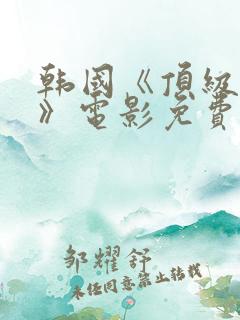 韩国《顶级
》电影免费
邹耀舒
未经同意禁止转载